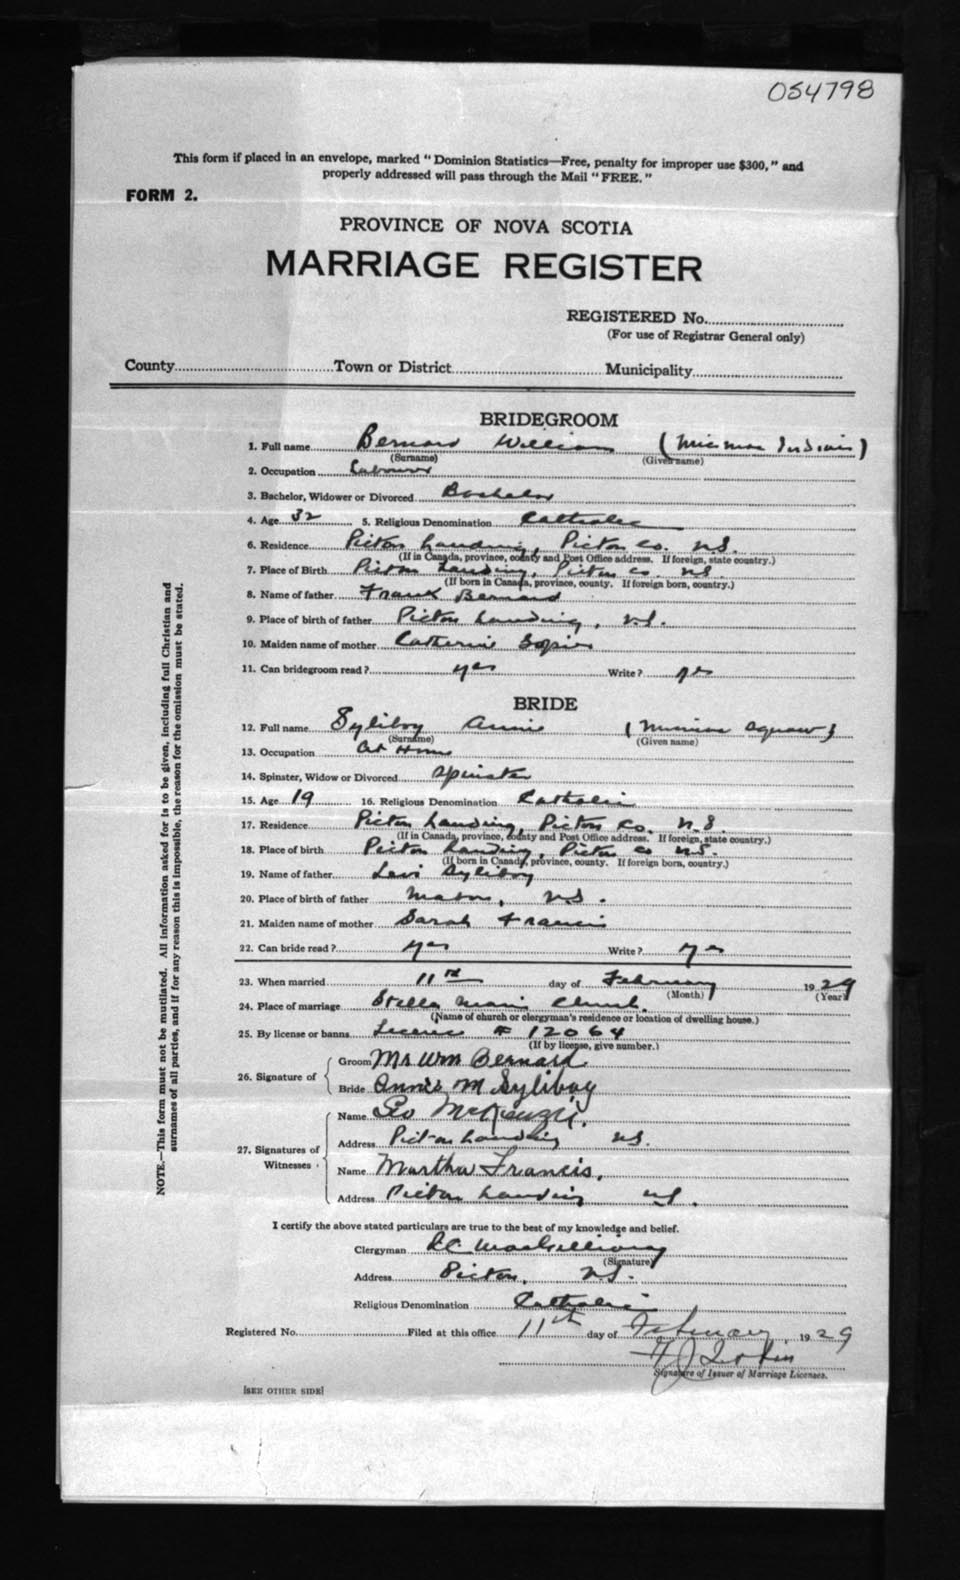 054798
This form if placed in an envelope, marked "Dominion Statistics—Free, penalty for improper use $300," and
properly addressed will pass through the Mail "FREE."
FORM 2.
PROVINCE OF NOVA SCOTIA
MARRIAGE REGISTER
REGISTERED No.
(For use of Registrar General only)
County Town or District Municipality
BRIDEGROOM
1. Full name Bernard William (Micmac Indian)
(Surname) (Given name)
2. Occupation Labourer
3. Bachelor, Widower or Divorced Bachelor
4. Age 32 5. Religious Denomination Catholic
6. Residence Pictou Landing, Pictou Co. N.S.
(If in Canada, province, county and Post Office address. If foreign, state country.)
7. Place of Birth Pictou Landing, Pictou Co. N.S.
(If born in Canada, province, county. If foreign born, country.)
8. Name of father Frank Bernard
9. Place of birth of father Pictou Landing, N.S.
10. Maiden name of mother Catherine Sopier
11. Can bridegroom read? yes Write? yes
BRIDE
12. Full name Syliboy Annie (Micmac Squaw)
(Surname) (Given name)
13. Occupation At Home
14. Spinster, Widow or Divorced Spinster
15. Age 19 16. Religious Denomination Catholic
17. Residence Pictou Landing, Pictou Co. N.S.
(If in Canada, province, county and Post Office address. If foreign, state country.)
18. Place of birth Pictou Landing, Pictou Co N.S.
(If born in Canada, province, county. If foreign born, country.)
19. Name of father Levi Syliboy
20. Place of birth of father N.S.
21. Maiden name of mother Sarah Francis
22. Can bride read? yes Write? yes
23. When married 11th day of February 1929
(Month) (Year)
24. Place of marriage Stella Maris Church.
(Name of church or clergyman's residence or location of dwelling house.)
25. By license or banns Licence # 12064
(If by license, give number.)
26. Signature of
Groom Mr Wm Bernard
Bride Annie M Syliboy
27. Signatures of Witnesses
Name Geo McKenzie.
Address Pictou Landing N.S.
Name Martha Francis.
Address Pictou Landing N.S.
I certify the above stated particulars are true to the best of my knowledge and belief.
Clergyman R.C. MacGillivray
(Signature)
Address Pictou, N.S.
Religious Denomination Catholic
Registered No. Filed at this office 11th day of February, 1929
Signature of Issuer of Marriage Licenses.
[SEE OTHER SIDE]
NOTE.—This form must not be mutilated. All information asked for is to be given, including full Christian and
surnames of all parties, and if for any reason this is impossible, the reason for the omission must be stated.